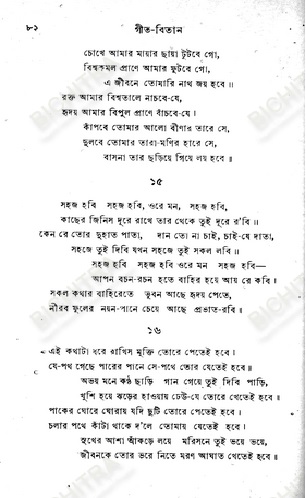 ৮১
গীত-বিতান
চোখে আমার মায়ার ছায়া টুটবে গো,
বিশ্বকমল প্রাণে আমার ফুটবে গো,
এ জীবনে তোমারি নাথ জয় হবে ॥
রক্ত আমার বিশ্বতালে নাচবে-যে,
হৃদয় আমার বিপুল প্রাণে বাঁচবে-যে।
কাঁপবে তোমার আলো বীণার তারে সে,
দুলবে তোমার তারা-মণির হারে সে,
বাসনা তার ছড়িয়ে গিয়ে লয় হবে ॥
১৫
সহজ হবি সহজ হবি, ওরে মন, সহজ হবি,
কাছের জিনিস দূরে রাখে তার থেকে তুই দূরে র'বি ॥
কেন রে তোর দুহাত পাতা, দান তো না চাই, চাই-যে দাতা,
সহজে তুই দিবি যখন সহজে তুই সকল লবি ॥
সহজ হবি সহজ হবি ওরে মন সহজ হবি—
আপন বচন-রচন হতে বাহির হয়ে আয় রে কবি।
সকল কথার বাহিরেতে ভুবন আছে হৃদয় পেতে,
নীরব ফুলের নয়ন-পানে চেয়ে আছে প্রভাত-রবি ॥
১৬
এই কথাটা ধরে রাখিস মুক্তি তোরে পেতেই হবে।
যে-পথ গেছে পারের পানে সে-পথে তোর যেতেই হবে ॥
অভয় মনে কণ্ঠ ছাড়ি গান গেয়ে তুই দিবি পাড়ি,
খুশি হয়ে ঝড়ের হাওয়ায় ঢেউ-যে তোরে খেতেই হবে ॥
পাকের ঘোরে ঘোরায় যদি ছুটি তোরে পেতেই হবে।
চলার পথে কাঁটা থাকে দ'লে তোমায় যেতেই হবে।
সুখের আশা আঁকড়ে লয়ে মরিসনে তুই ভয়ে ভয়ে,
জীবনকে তোর ভরে নিতে মরণ আঘাত খেতেই হবে ॥
BICHITRA